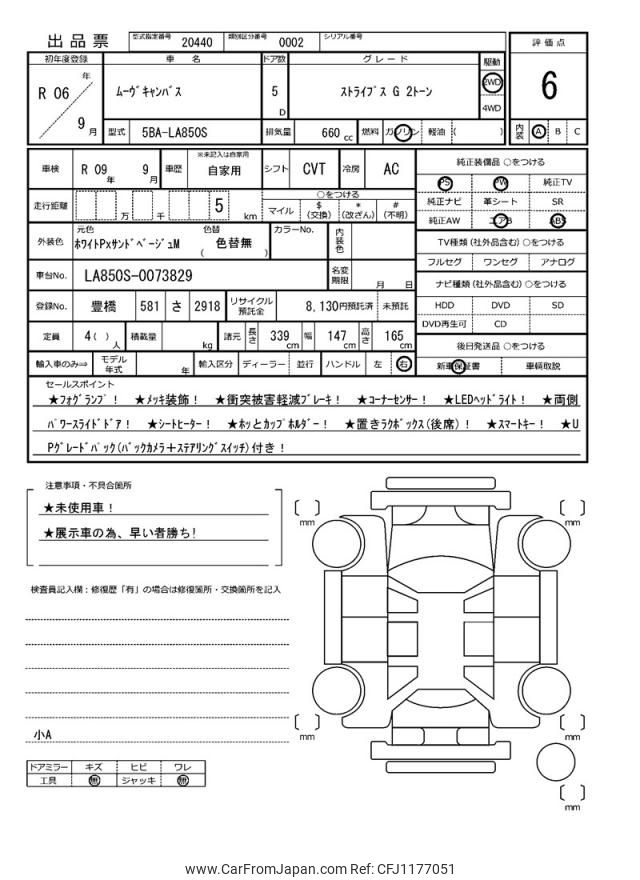 出品票 型式指定番号 20440 類別区分番号 0002 シリアル番号
評価点
6
内装 A B C
初年度登録 車名 ドア数 グレード 駆動
R 06 年 9 月
ムーヴキャンバス 5 D ストライプス G 2トーン 2WD
4WD
型式 5BA-LA850S 排気量 660 cc 燃料 ガソリン 軽油 ( )
車検 R 09 年 9 月 車歴 ※未記入は自家用 自家用 シフト CVT 冷房 AC
走行距離 万 千 5 km
○をつける
マイル $ (交換) * (改ざん) # (不明)
外装色 元色 ホワイトPxサンドベージュM 色替 ( 色替無 ) カラーNo. 内装色
車台No. LA850S-0073829 名変期限 月 日
登録No. 豊橋 581 さ 2918 リサイクル預託金 8,130円預託済 未預託
定員 4( ) 人 積載量 kg 諸元 長さ 339 cm 幅 147 cm 高さ 165 cm
輸入車のみ⇒ モデル年式 年 輸入区分 ディーラー 並行 ハンドル 左 右
純正装備品 ○をつける
PS PW 純正TV
純正ナビ 革シート SR
純正AW エアB ABS
TV種類 (社外品含む) ○をつける
フルセグ ワンセグ アナログ
ナビ種類 (社外品含む) ○をつける
HDD DVD SD
DVD再生可 CD
後日発送品 ○をつける
新車保証書 車輌取説
セールスポイント
★フォグランプ! ★メッキ装飾! ★衝突被害軽減ブレーキ! ★コーナーセンサー! ★LEDヘッドライト! ★両側
パワースライドドア! ★シートヒーター! ★ホッとカップホルダー! ★置きラクボックス(後席)! ★スマートキー! ★U
Pグレードパック(バックカメラ+ステアリングスイッチ)付き!
注意事項・不具合箇所
★未使用車!
★展示車の為、早い者勝ち!
検査員記入欄:修復歴「有」の場合は修復箇所・交換箇所を記入
小A
ドアミラー キズ ヒビ ワレ
工具 無 ジャッキ 無
mm
mm
mm
mm
mm
www.CarFromJapan.com Ref: CFJ1177051